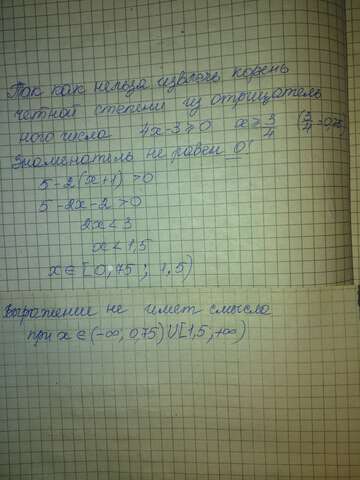 Так как нельзя извлечь корень
четной степени из отрицатель
ного числа 4x-3≥0 x≥3/4 (3/4=0,75)
Знаменатель не равен 0
5-2(x+1)>0
5-2x-2>0
2x<3
x<1,5
x∈[0,75; 1,5)
Выражение не имет смысла
при x∈(-∞; 0,75)∪[1,5; +∞)